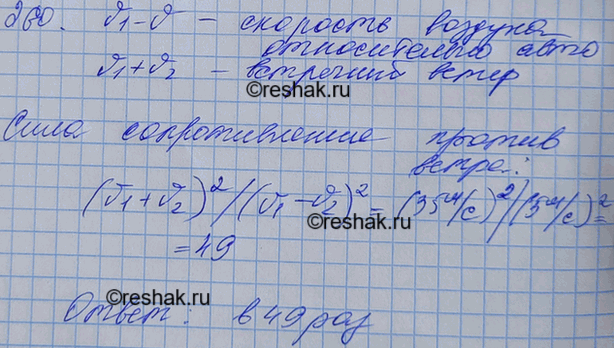 260. υ₁-υ – скорость воздуха
относительно авто
υ₁+υ₂ – встречный ветер
©reshak.ru
Сила сопротивление против
ветра:
(υ₁+υ₂)²/(υ₁-υ₂)² = (35м/с)²/(5м/с)² =
= 49
©reshak.ru
©reshak.ru
Ответ: в 49 раз